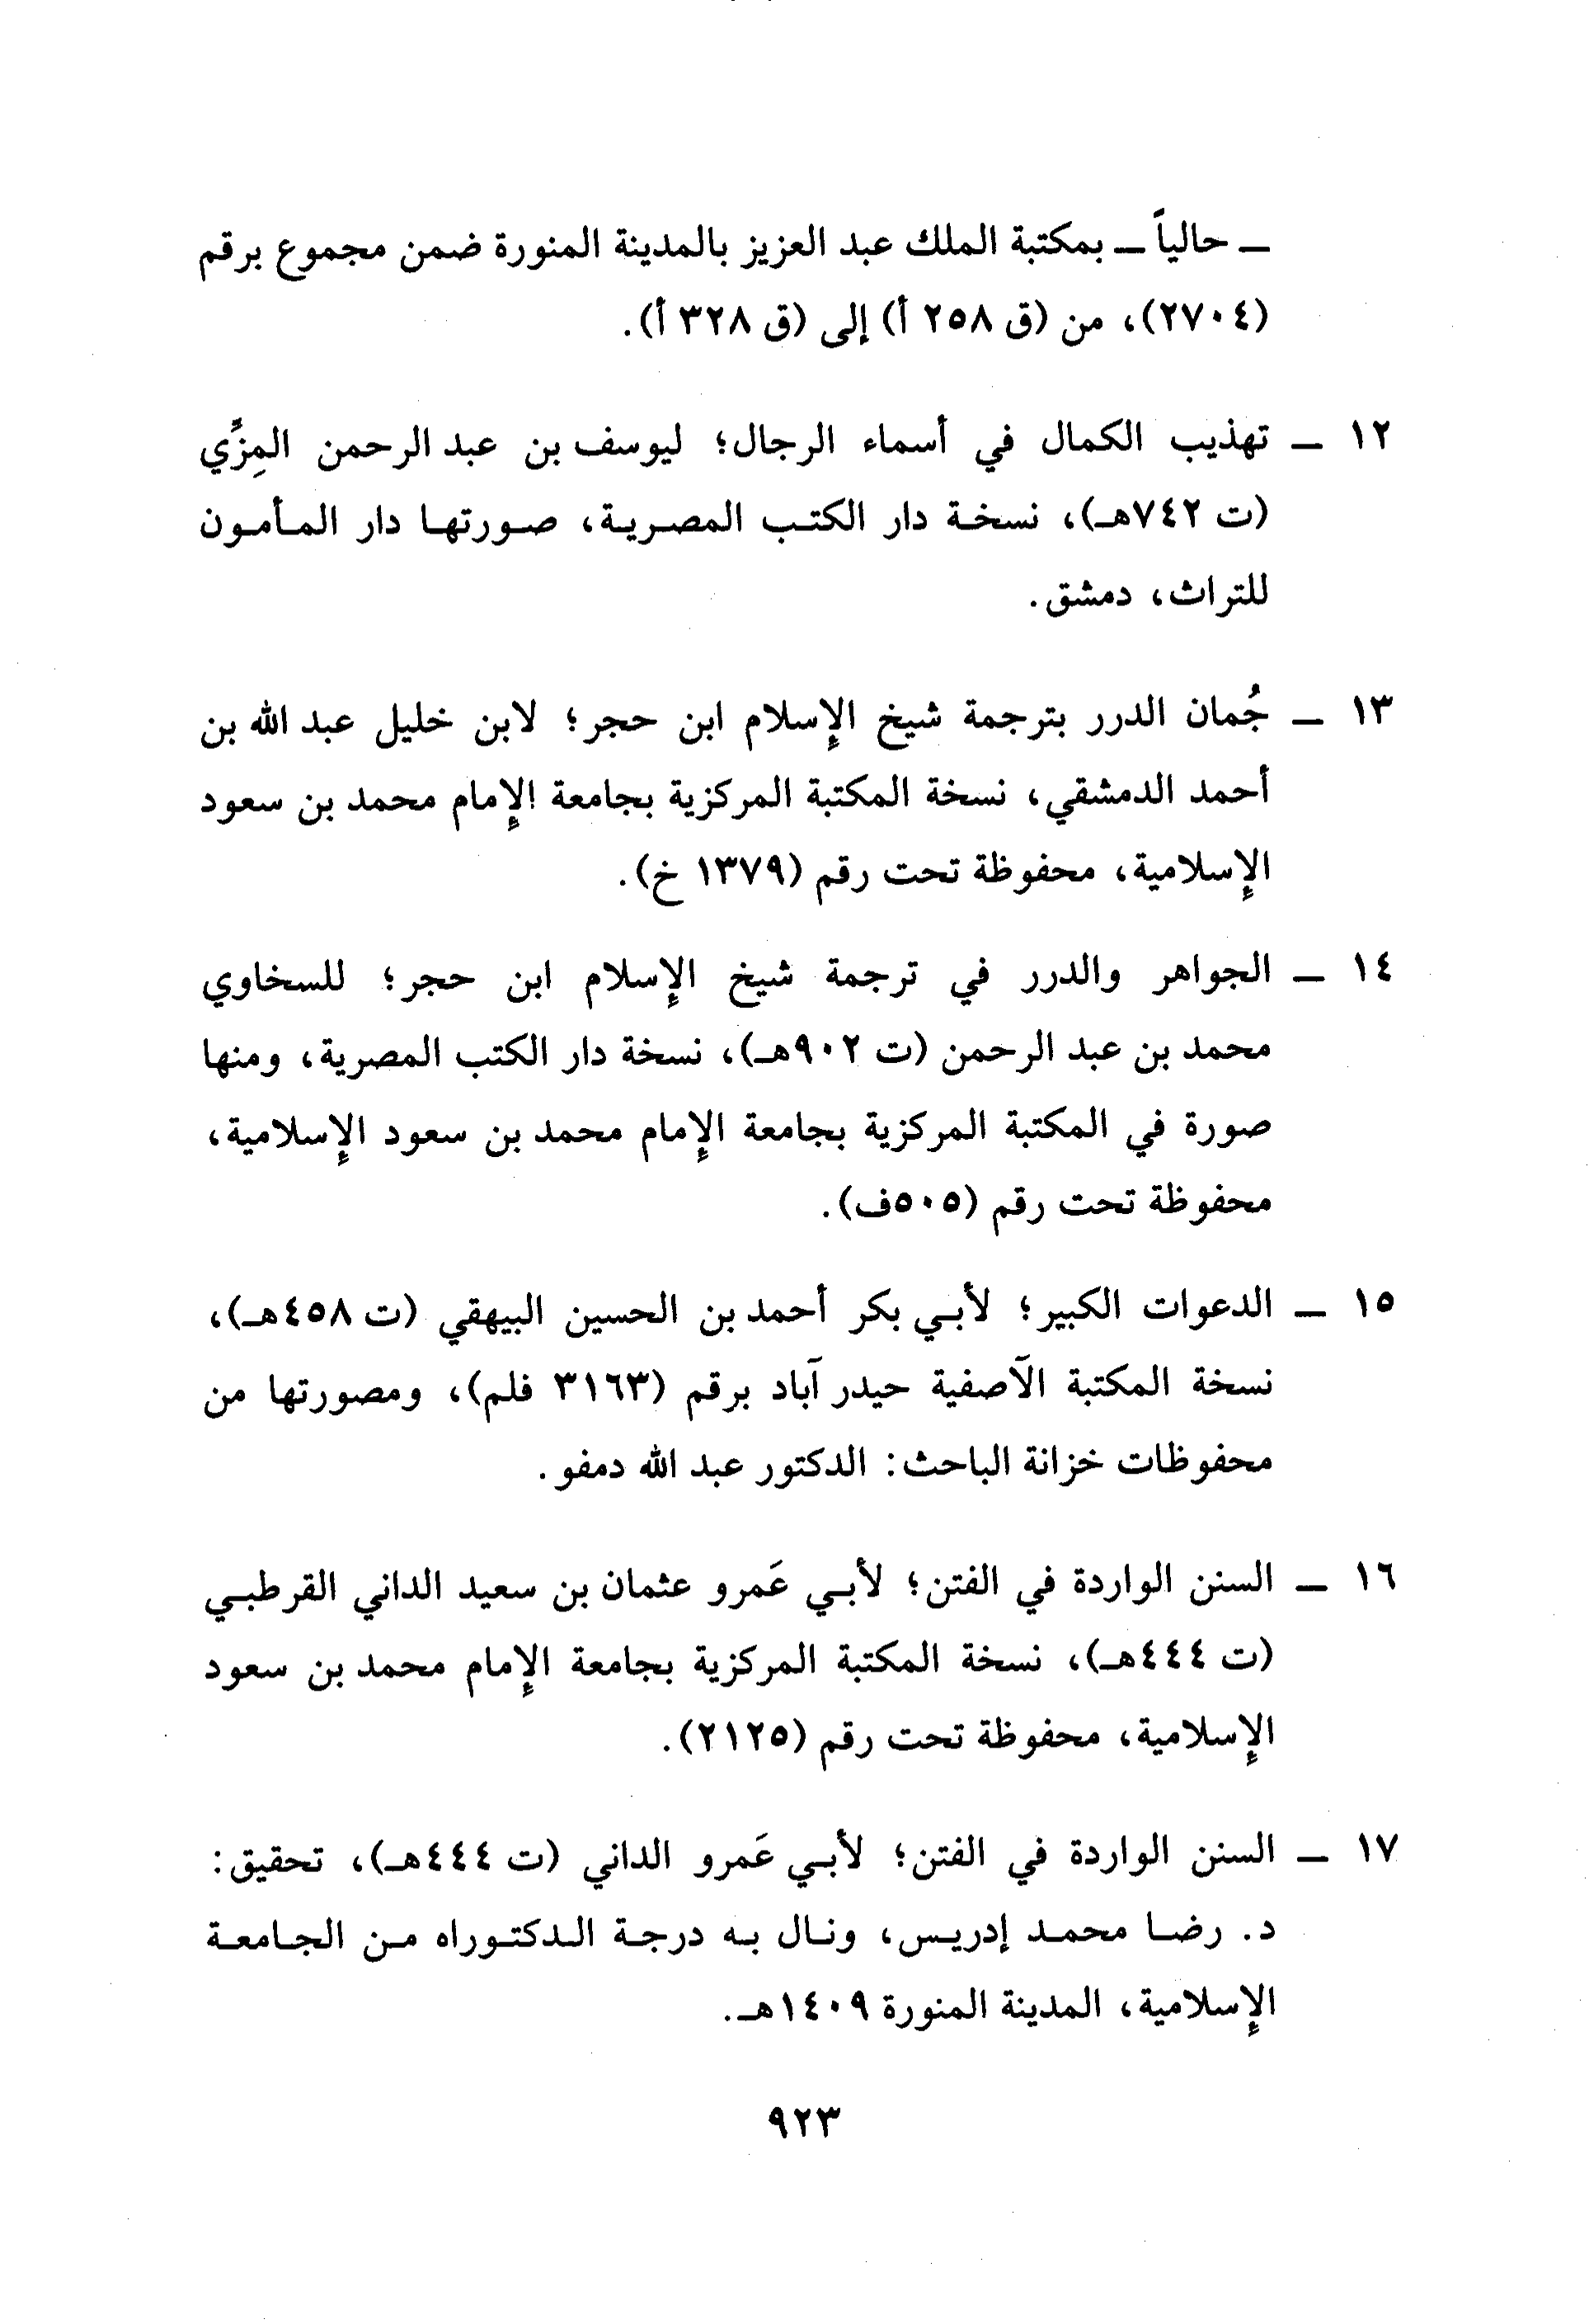 ــ حالياً ــ بمكتبة الملك عبد العزيز بالمدينة المنورة ضمن مجموع برقم
(٢٧٠٤)، من (ق ٢٥٨ أ) إلى (ق ٣٢٨ أ).
١٢ ــ تهذيب الكمال في أسماء الرجال؛ ليوسف بن عبد الرحمن المِزِّي
(ت ٧٤٢هـ)، نسخة دار الكتب المصرية، صورتها دار المأمون
للتراث، دمشق.
١٣ ــ جُمان الدرر بترجمة شيخ الإسلام ابن حجر؛ لابن خليل عبد الله بن
أحمد الدمشقي، نسخة المكتبة المركزية بجامعة الإمام محمد بن سعود
الإسلامية، محفوظة تحت رقم (١٣٧٩ خ).
١٤ ــ الجواهر والدرر في ترجمة شيخ الإسلام ابن حجر؛ للسخاوي
محمد بن عبد الرحمن (ت ٩٠٢هـ)، نسخة دار الكتب المصرية، ومنها
صورة في المكتبة المركزية بجامعة الإمام محمد بن سعود الإسلامية،
محفوظة تحت رقم (٥٠٥ف).
١٥ ــ الدعوات الكبير؛ لأبي بكر أحمد بن الحسين البيهقي (ت ٤٥٨هـ)،
نسخة المكتبة الآصفية حيدر آباد برقم (٣١٦٣ فلم)، ومصورتها من
محفوظات خزانة الباحث: الدكتور عبد الله دمفو.
١٦ ــ السنن الواردة في الفتن؛ لأبي عَمرو عثمان بن سعيد الداني القرطبي
(ت ٤٤٤هـ)، نسخة المكتبة المركزية بجامعة الإمام محمد بن سعود
الإسلامية، محفوظة تحت رقم (٢١٢٥).
١٧ ــ السنن الواردة في الفتن؛ لأبي عَمرو الداني (ت ٤٤٤هـ)، تحقيق:
د. رضا محمد إدريس، ونال به درجة الدكتوراه من الجامعة
الإسلامية، المدينة المنورة ١٤٠٩هـ.
٩٢٣